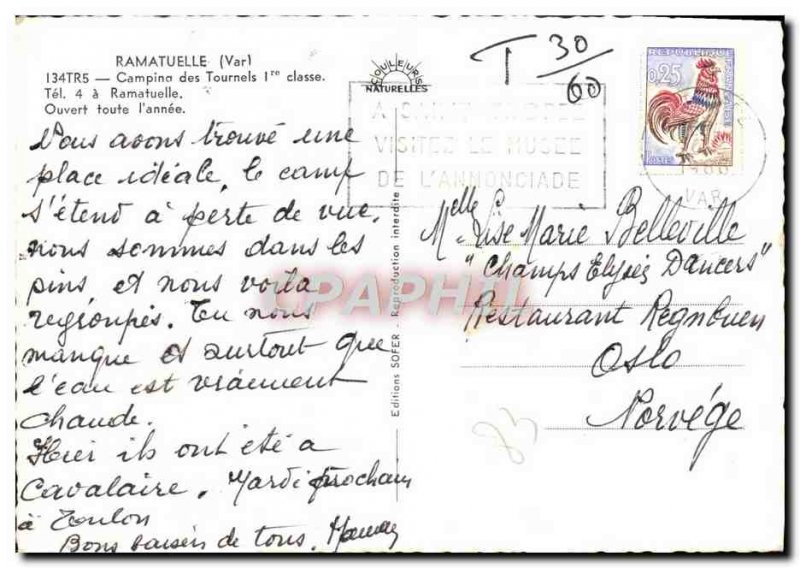 RAMATUELLE (Var)
134TR5 — Camping des Tournels 1re classe.
Tél. 4 à Ramatuelle.
Ouvert toute l'année.
COULEURS
NATURELLES
T 30/60
REPUBLIQUE FRANÇAISE
0,25
POSTES
VISITEZ LE MUSEE
DE L'ANNONCIADE
VAR
Nous avons trouvé une
place idéale, le camp
s'étend à perte de vue,
nous sommes dans les
pins, et nous voila
regroupés. Tu nous
manque et surtout que
l'eau est vraiment
chaude.
Hier ils ont été a
Cavalaire. Mardi prochain
à Toulon
Bons baisers de tous. Maman
Editions SOFER - Reproduction interdite
CPAPHIL
Melle Lise Marie Belleville
"Champs Elysés Dancers"
Restaurant Regnbuen
Oslo
Norvége
83